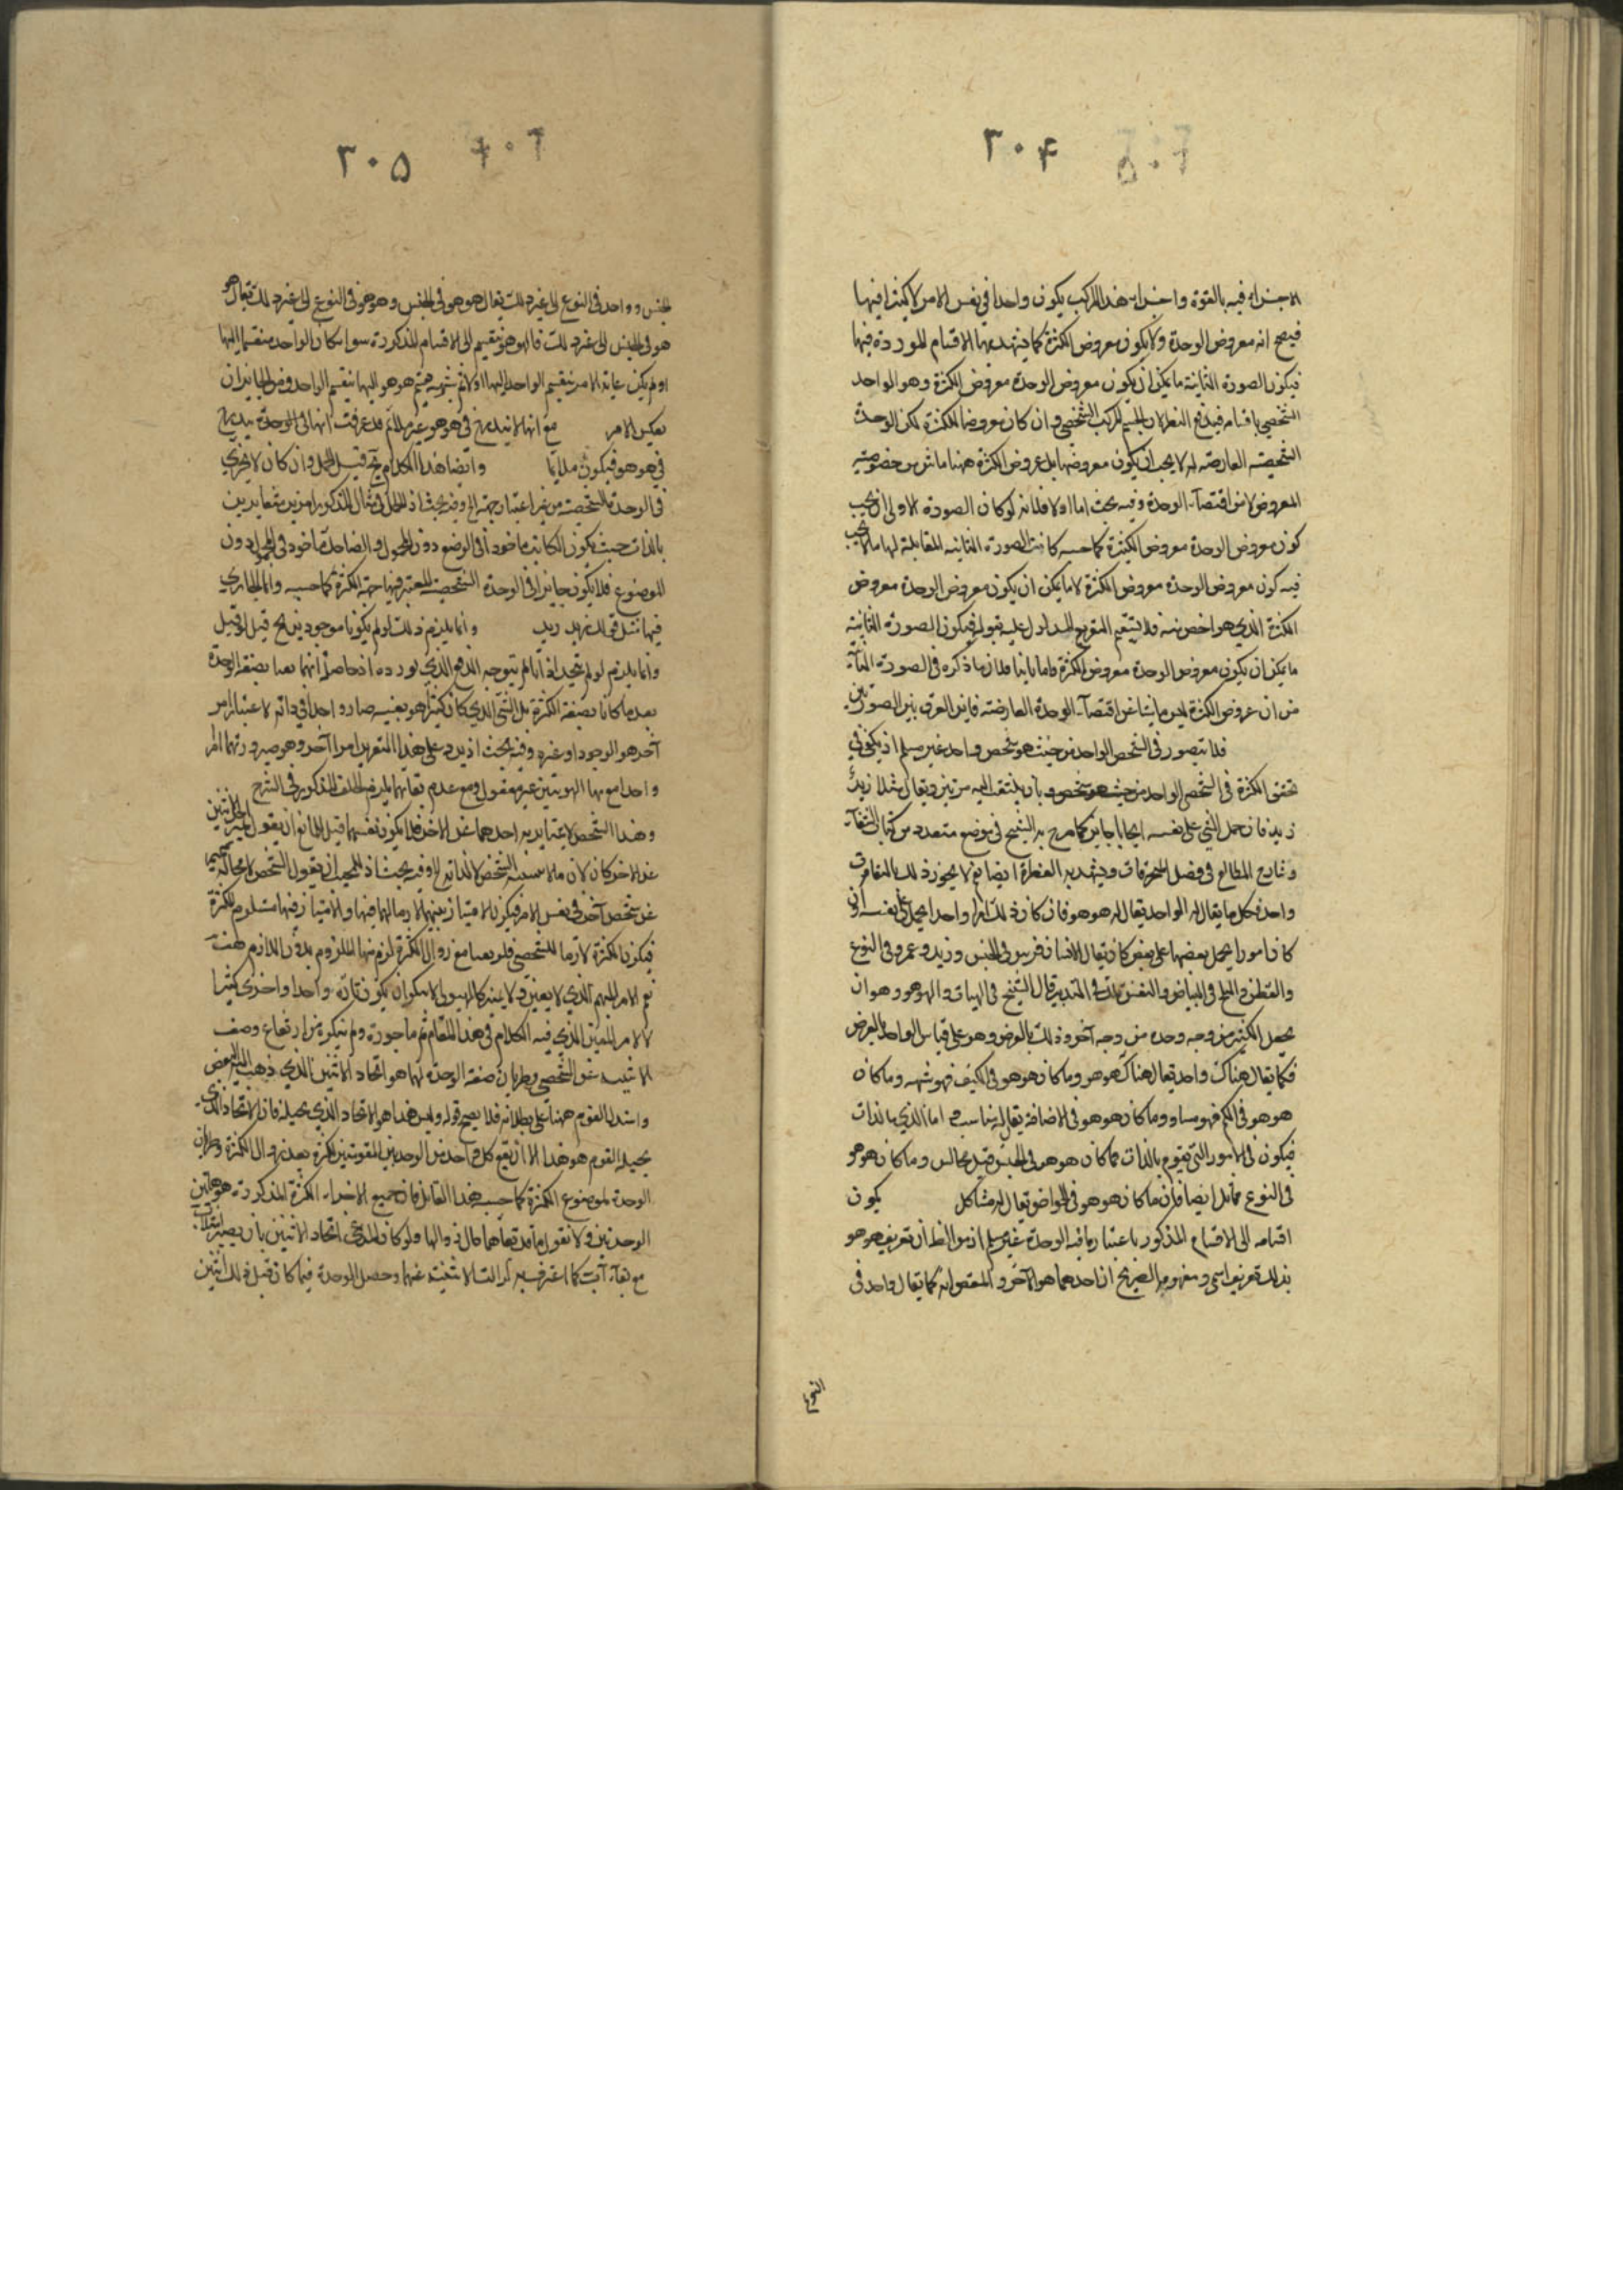 ٣٠۴
الاجزاء فيه بالقوة واجزاء هذا المركب يكون واحدا في نفس الامر لا كثيرا فيها
فيصح انه معروض الوحدة ولا يكون معروض الكثرة كما يشهد بها الاقسام الموردة فيها
فيكون الصورة الثانية ما يمكن ان يكون معروض الوحدة معروض الكثرة وهو الواحد
الشخصي باقسامه فيندفع النظر لان الجسم المركب الشخصي وان كان معروضا للكثرة لكن الوحدة
الشخصية العارضة له لا يجب ان يكون معروضها بل عروض الكثرة ههنا ناش من خصوصية
المعروض لا من اقتضاء الوحدة وفيه بحث اما اولا فلانه لو كان الصورة الاولى ان يجب
كون معروض الوحدة معروض الكثرة كما حسبه كانت الصورة الثانية المقابلة لها ما لا يجب
فيه كون معروض الوحدة معروض الكثرة لا ما يمكن ان يكون معروض الوحدة معروض
الكثرة الذي هو اخص منه فلا يستقيم التفريع المدلول عليه بقوله فيكون الصورة الثانية
ما يمكن ان يكون معروض الوحدة معروض الكثرة واما ثانيا فلان ما ذكره في الصورة الثانية
من ان عروض الكثرة ليس ناشئا عن اقتضاء الوحدة العارضة فاين الفرق بين الصورتين
فلا يتصور في الشخص الواحد من حيث هو شخص واحد غير مسلم اذ يكفي في
تحقق الكثرة في الشخص الواحد من حيث هو شخص بان يلتفت اليه مرتين ويقال مثلا زيد
زيد فان حمل الشئ على نفسه ايجابا جايز كما صرح به الشيخ في موضع متعدد من كتاب الشفاء
وشارح المطالع في فصل المحرفات ويشهد به الفطرة ايضا نعم لا يجوز ذلك بالتعارف
واحد فكل ما يقال له الواحد يقال له هو هو فان كان ذلك امرا واحدا يحمل على نفسه وان
كان امورا يحمل بعضها على بعض كان يقال الانسان فرس في الجنس وزيد وعمرو في النوع
والقطن والثلج في البياض والنفس والملك في التدبير قال الشيخ في الهيات والهو هو وهو ان
يحصل للكثير من وجه وحدة من وجه آخر وذلك بالعرض وهو على قياس الواحد بالعرض
فكما يقال هناك واحد يقال هناك هو هو وما كان هو هو في الكيف فهو شبيه وما كان
هو هو في الكم فهو مساو وما كان هو هو في الاضافة يقال له مناسب واما الذي بالذات
فيكون في الامور التي تقوم بالذات فما كان هو هو في الجنس قيل مجانس وما كان هو هو
في النوع مماثل ايضا فان ما كان هو هو في الخواص يقال له مشاكل يكون
اقسامه الى الاقسام المذكور باعتبار ما فيه الوحدة غير مسلم اذ من الظ ان تعريف هو هو
بذلك تعريف اسمي ومفهومه الصريح ان احدهما هو الآخر والمقصود انه كما يقال واحد في
النوع
٣٠۵
الجنس وواحد في النوع الى غير ذلك يقال هو هو في الجنس وهو هو في النوع الى غير ذلك يقال هو
هو في الجنس الى غير ذلك فالهو هو ينقسم الى الاقسام المذكورة سواء كان الواحد منقسما اليها
او لم يكن غاية الامر ينقسم الواحد اليها اولا ثم ينقسم هو هو اليها
بعكس الامر مع انها لا تندرج في هو هو غير ملائم قد عرفت انها في الوحدة يندرج
في هو هو فيكون ملايما وايضا هذا الكلام قيل الحمل وان كان لا يجري
في الوحدة الشخصية من غير اعتبار جهة الخ وفيه بحث اذ للحمل في مثال المذكور امرين متغايرين
بالذات حيث يكون الكتابة ماخوذا في الوضع دون المحمول والضاحك ماخوذ في المحمول دون
الموضوع فلا يكون جايزا في الوحدة الشخصية المعتبر فيها جهة الكثرة كما حسبه وانما الجاري
فيها مثل قولك زيد زيد وانما يلزم ذلك لو لم يكونا موجودين قيل
وانما يلزم لو لم يتحدا اذا لم يتوجه الدفع الذي يورده اذ حاصله انهما بعينهما بصفة الوحدة
بعد ما كانا بصفة الكثرة بل الشئ الذي كان كثيرا هو بعينه صار واحدا في ذاته لا باعتبار امر
آخر هو الوجود او غيره وفيه بحث اذ يرد على هذا التقرير امرا آخر وهو صيرورتهما امرا
واحدا مع بقاء الهويتين غير معقول ومع عدم بقائهما يلزم الخلف المذكور في الشرح
وهذا التشخص الاعتبار به احدهما عن الآخر فلا يكون نفسهما قيل للمانع ان يقول
عن الآخر كان لان ما لا ينسب الشخص لذاته الخ وفيه بحث اذ للمجيب ان يقول الشخص لا محالة
عن شخص آخر في نفس الامر فيكون الامتياز بينهما لازما لهما فيها والامتياز فيها مستلزم للكثرة
فيكون الكثرة لازما للشخص فلو بقيا مع زوال الكثرة لزم بقاء الملزوم بدون اللازم هف
نعم الامر المبهم الذي لا يتعين كالهيولى لا ينكر ان يكون تارة واحدا واخرى كثيرا
لا الامر المعين الذي فيه الكلام في هذا المقام ثم ما جوزه ولم ينكره من ارتفاع وصف
الاثنينية عن الشخصين وطريان صفة الوحدة لهما هو اتحاد الاثنين الذي ذهب اليه البعض
واستدل القوم ههنا على بطلانه فلا يصح قوله وليس هذا هو الاتحاد الذي يحيله فان الاتحاد الذي
يحيله القوم هو هذا الا ان يقع كل واحد من الوحدتين المقومتين للكثرة بعد زوال الكثرة وطريان
الوحدة لموضوع الكثرة كما حسبه هذا القائل فان جميع الاجزاء الكثرة المذكورة هو هاتين
الوحدتين ولا نقول ببقائهما حال زوالها ولو كان المدعي اتحاد الاثنين بان يصير
مع بقاء كما اعترف به زالت الاثنينية عنهما وحصل الوحدة فيما كان قبل ذلك اثنين